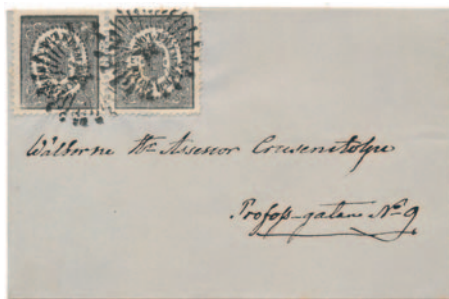 Wälborne Hr Assessor Crusenstolpe
Profoss-gatan No 9